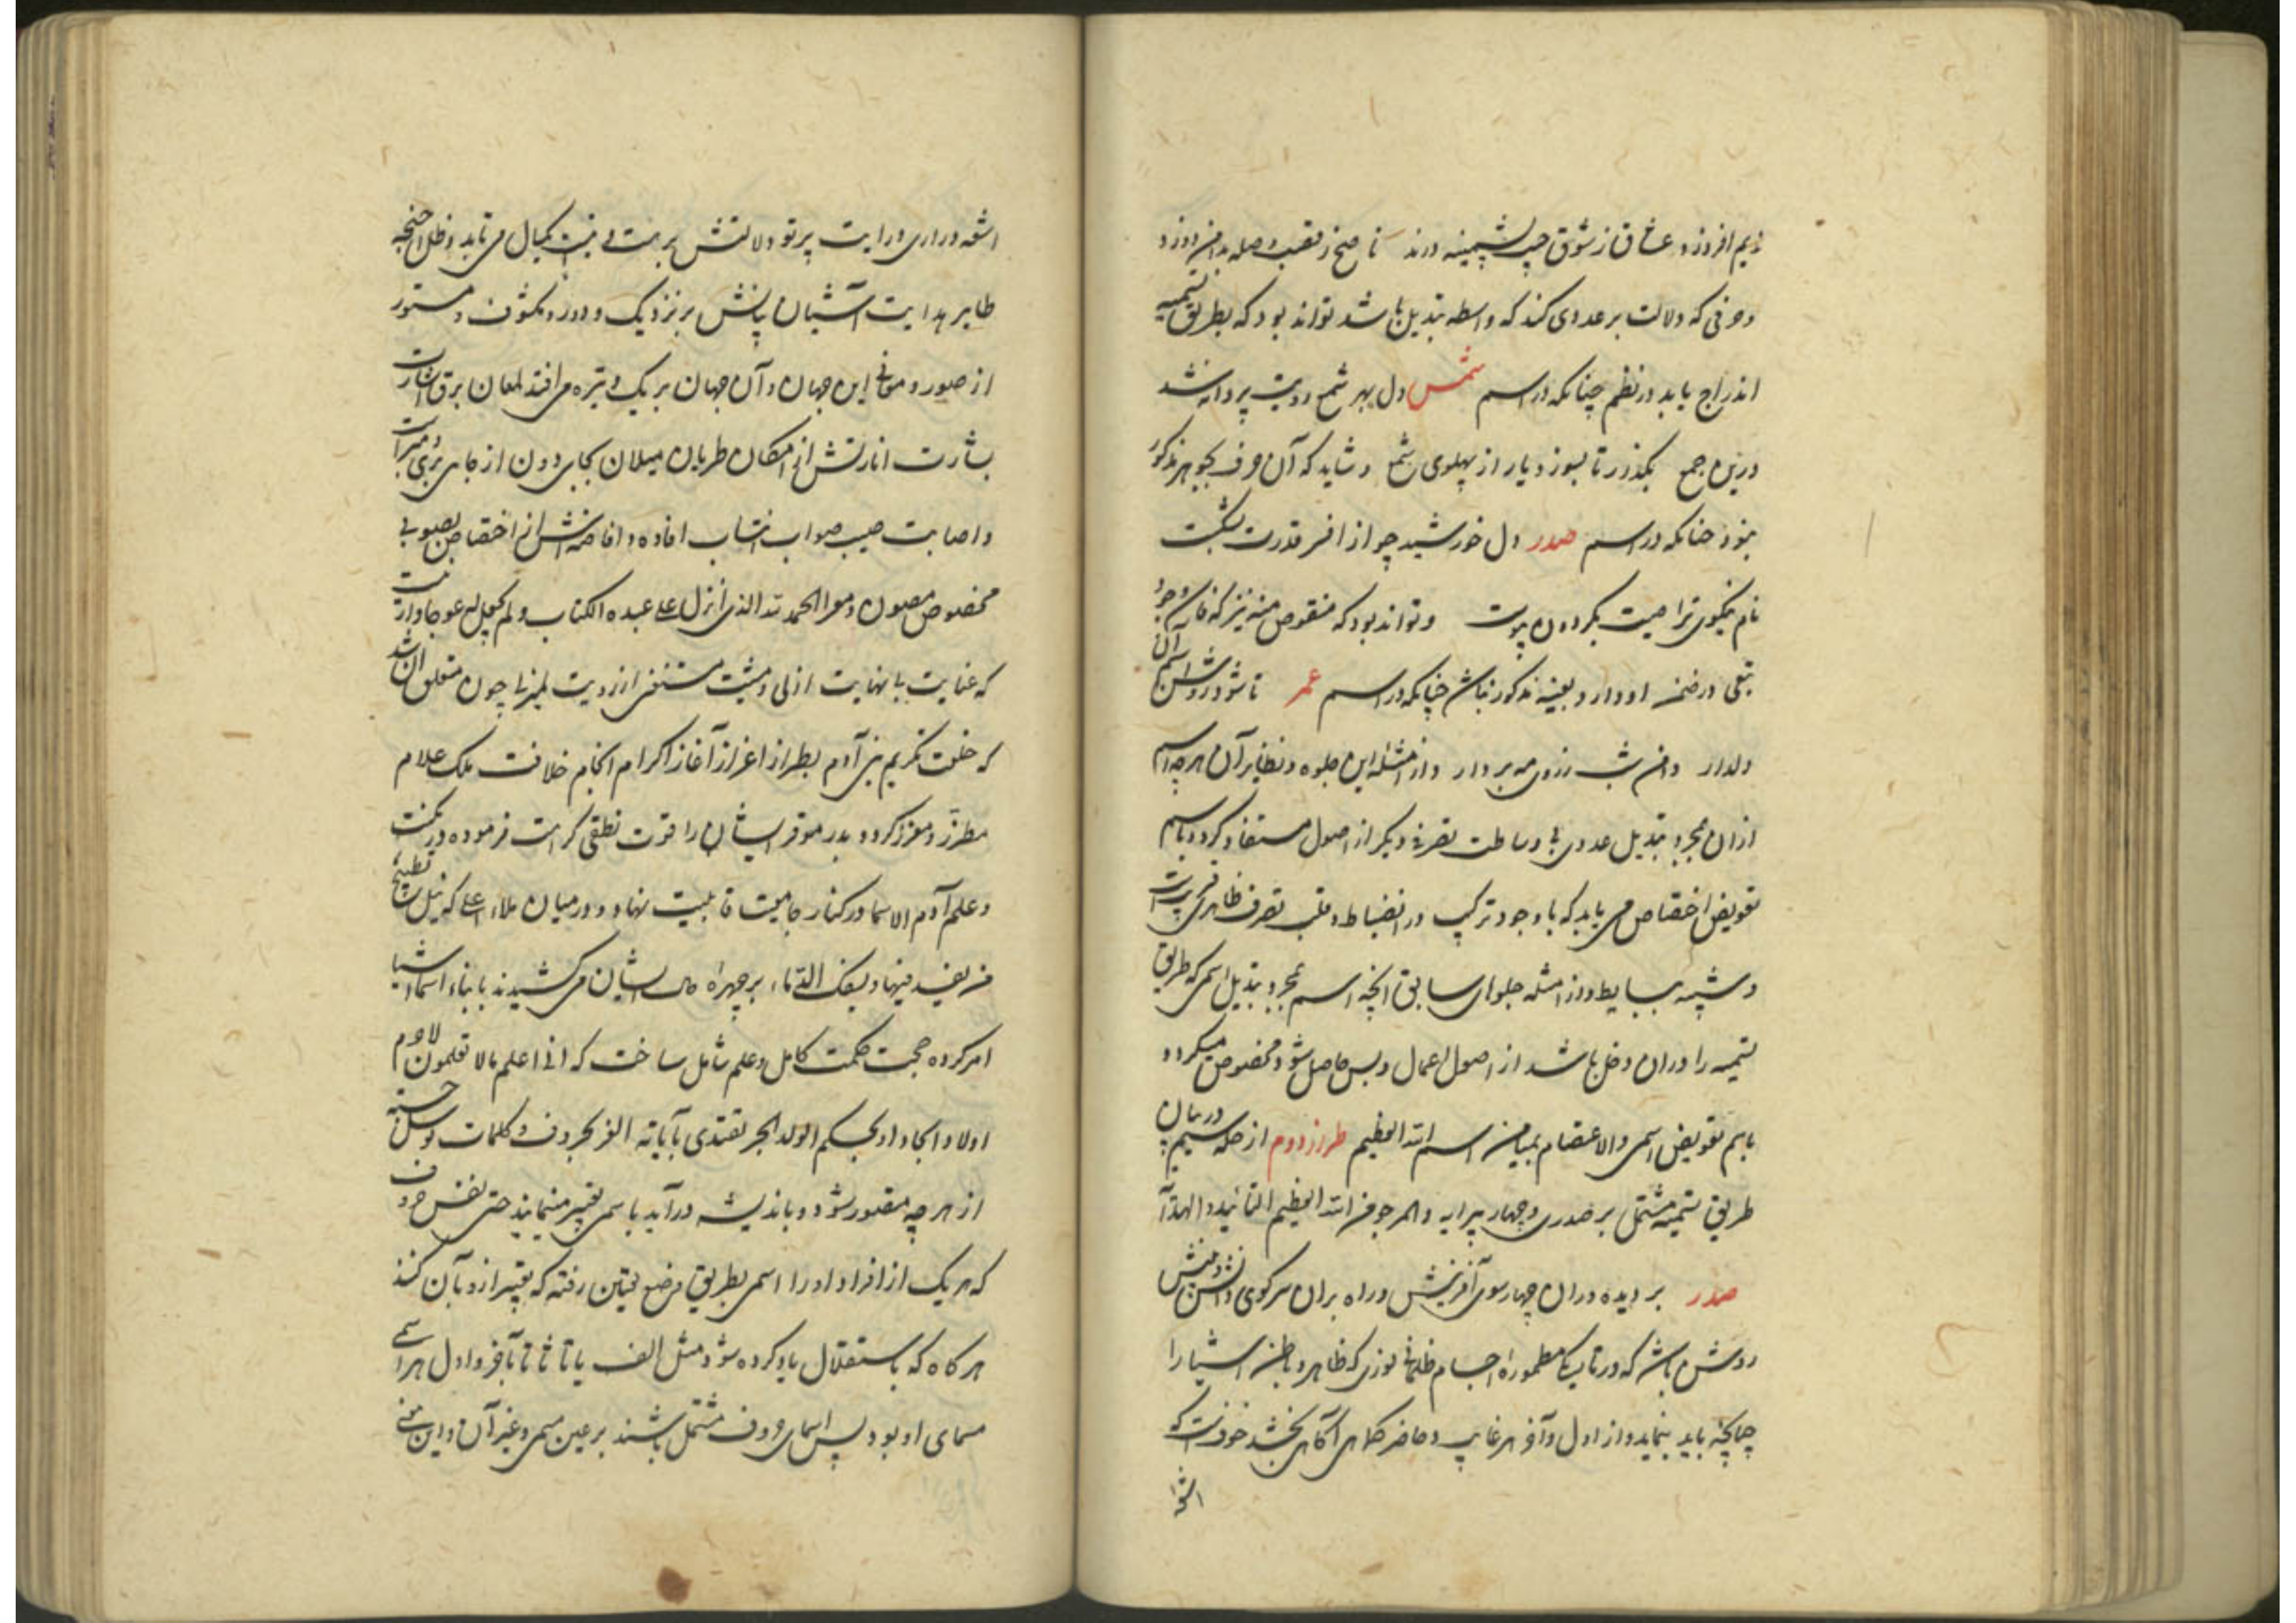 نیم افروزد عشاق از شوق جیب پشمینه درند ناصح ز تعب وصله بدامن دوزد
و حرفی که دلالت بر عددی کند که واسطه تبدیل باشد تواند بود که بطریق تسمیه
اندراج یابد در نظم چنانکه در اسم شمس دل بهر شمع رویت پروانه شد
درین جمع بگذر تا بسوزد یار از پهلوی شمع و شاید که آن حرف بجوهر مذکور
بود چنانکه در اسم صدر دل خورشید چو از افسر قدرت بشکست
نام نیکوی ترا صیت بگردون پیوست و تواند بود که منقوص منه نیز که
در ضمن او دارد و بعینه مذکور نباشد چنانکه در اسم عمر تا شود روشن
دلدار دامن شب ز روی مه بردار و از امثله این جلوه و نظایر آن هر چه اسم
از آن مجرد تبدیل عددی بی وساطت تصرفی دیگر از اصول مستفاد گردد باسم
تفویض اختصاص می یابد که با وجود ترکیب در انضباط و قلت تصرف ظاهر
و شبیه ببسایط و از امثله جلوهای سابق آنچه اسم بمجرد تبدیل اسمی که طریق
تسمیه را در آن دخل باشد از اصول اعمال و بس حاصل شود مخصوص میگردد
باسم تفویض اسمی والاعتصام بمیامن اسم الله العظیم طراز دوم از حله سیم در بیان
طریق تسمیه مشتمل بر صدری و چهار پیرایه والمرجو من الله العظیم التائید والهدایه
صدر بر دیده وران چهارسوی آفرینش و راه بران سر کوی دانش و بینش
روشن باشد که در تاریک مطموره اجسام ظلمانی نوری که ظاهر و باطن اشیا را
چنانچه باید بنماید و از اول و آخر هر غایب و حاضر کماهی آگاهی بخشد خود نیست که
اشعه
اشعه دراری درایت پرتو دلالتش بر بلند و پست کمال می تابد و ظل اجنحه
طایر هدایت آشیان بیانش بر نزدیک و دور و مکشوف و مستور
از صور و معانی این جهان و آن جهان بر یک وتیره می افتد لمعان برق اشارت
بشارت انارتش از امکان طریان میلان بجایی دون از جایی بری و مبرا
و اصابت صیب صواب انتساب افاده و افاضه اش از اختصاص بصوبی
مخصوص مصون و معرا الحمد لله الذی انزل علی عبده الکتاب ولم یجعل له عوجا
که عنایت بی نهایت ازلی و مشیت مستغنی از رویت لم یزلی چون متعلق آن شد
که خلعت تکریم بنی آدم بطراز اعزاز آغاز اکرام انجام خلافت ملک علام
مطرز و معزز گردد بدر موقر ایشان را قوت نطقی کرامت فرموده
و علم آدم الاسما در کنار جامعیت قابلیت نهاد و در میان ملاء اعلی که نیل
من یفسد فیها و یسفک الدماء بر چهره حال ایشان می کشیدند بانباء اسماء اشیا
امر کرده حجت حکمت کامل و علم شامل ساخت که انی اعلم مالا تعلمون لاجرم
اولاد امجاد او بحکم الولد الحر یقتدی بآبائه الغر بحروف و کلمات
از هر چه متصور شود و باندیشه درآید باسمی تعبیر مینمایند حتی نفس حروف
که هر یک از افراد او را اسمی بطریق وضع تعیین رفته که تعبیر ازو بآن کنند
هر گاه که باستقلال یاد کرده شود مثل الف با تا ثا تا بآخر و اول هر اسمی
مسمای او بود پس اسمای حروف مشتمل باشند بر عین مسمی و غیر آن و این معنی